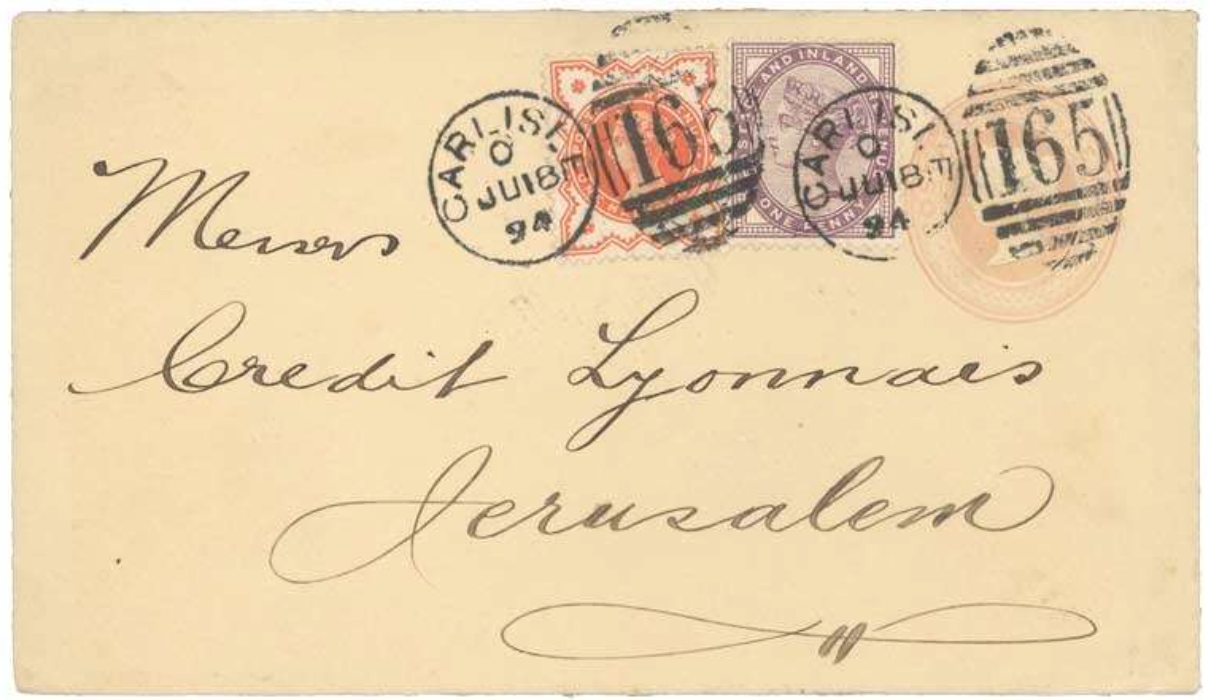 CARLISLE
O
JU18E
94
165
AND INLAND
ONE PENNY
CARLISL
O
JU18E
94
165
Messrs
Credit Lyonnais
Jerusalem